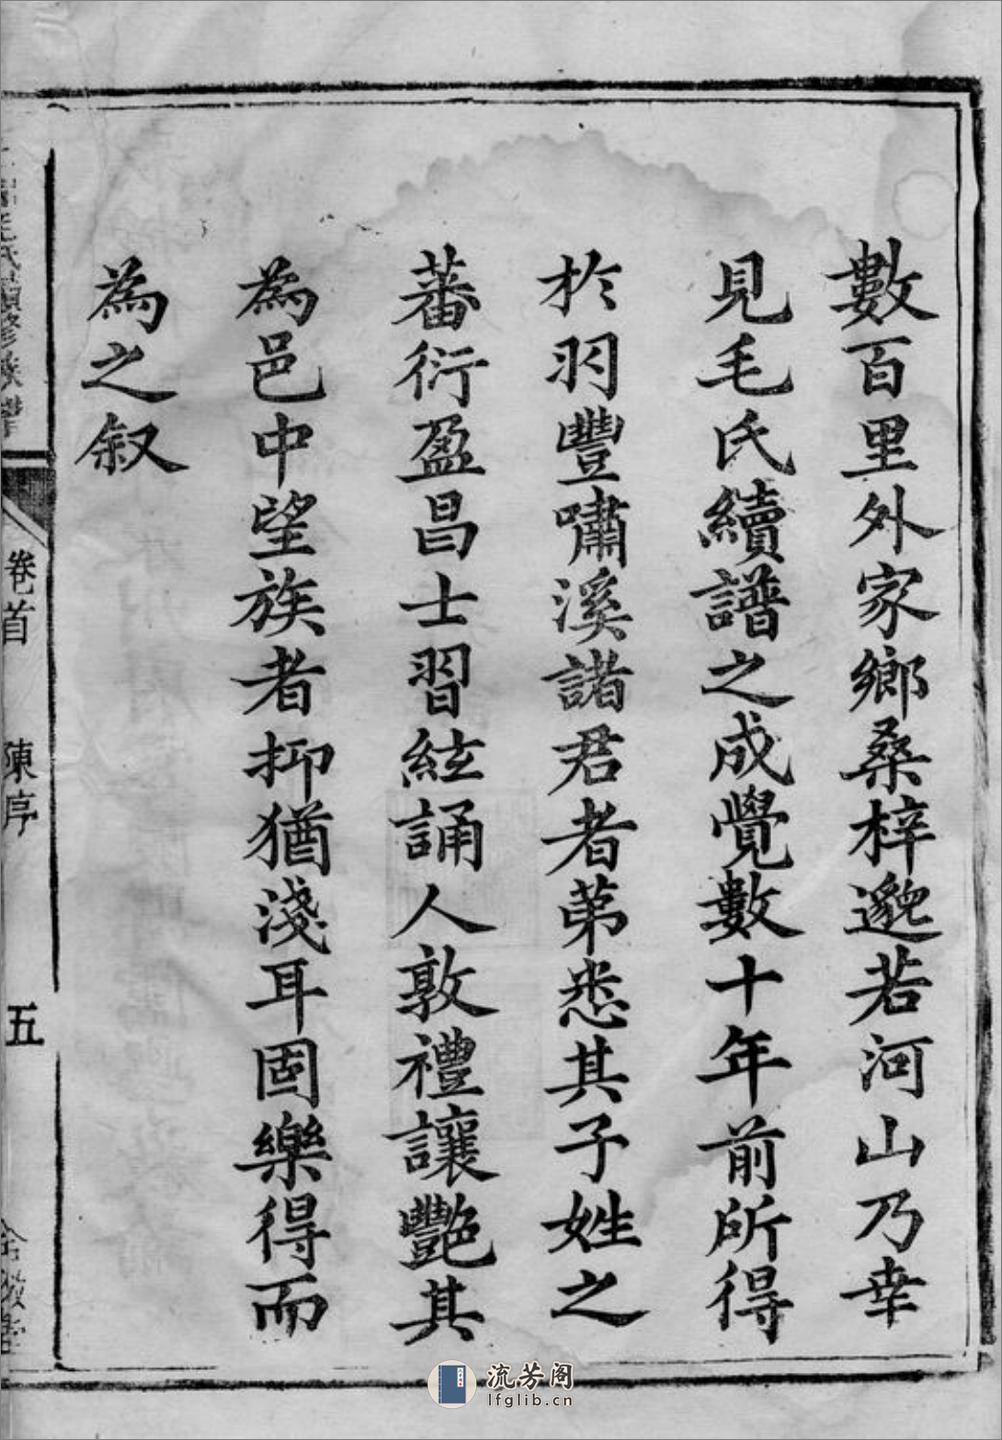 數百里外家鄉桑梓邈若河山乃幸
見毛氏續譜之成覺數十年前所得
於羽豐嘯溪諸君者苐悉其子姓之
蕃衍盈昌士習絃誦人敦禮讓艷其
為邑中望族者抑猶淺耳固樂得而
為之叙
毛氏續修族譜
卷首
陳序
五
流芳阁
lfglib.cn